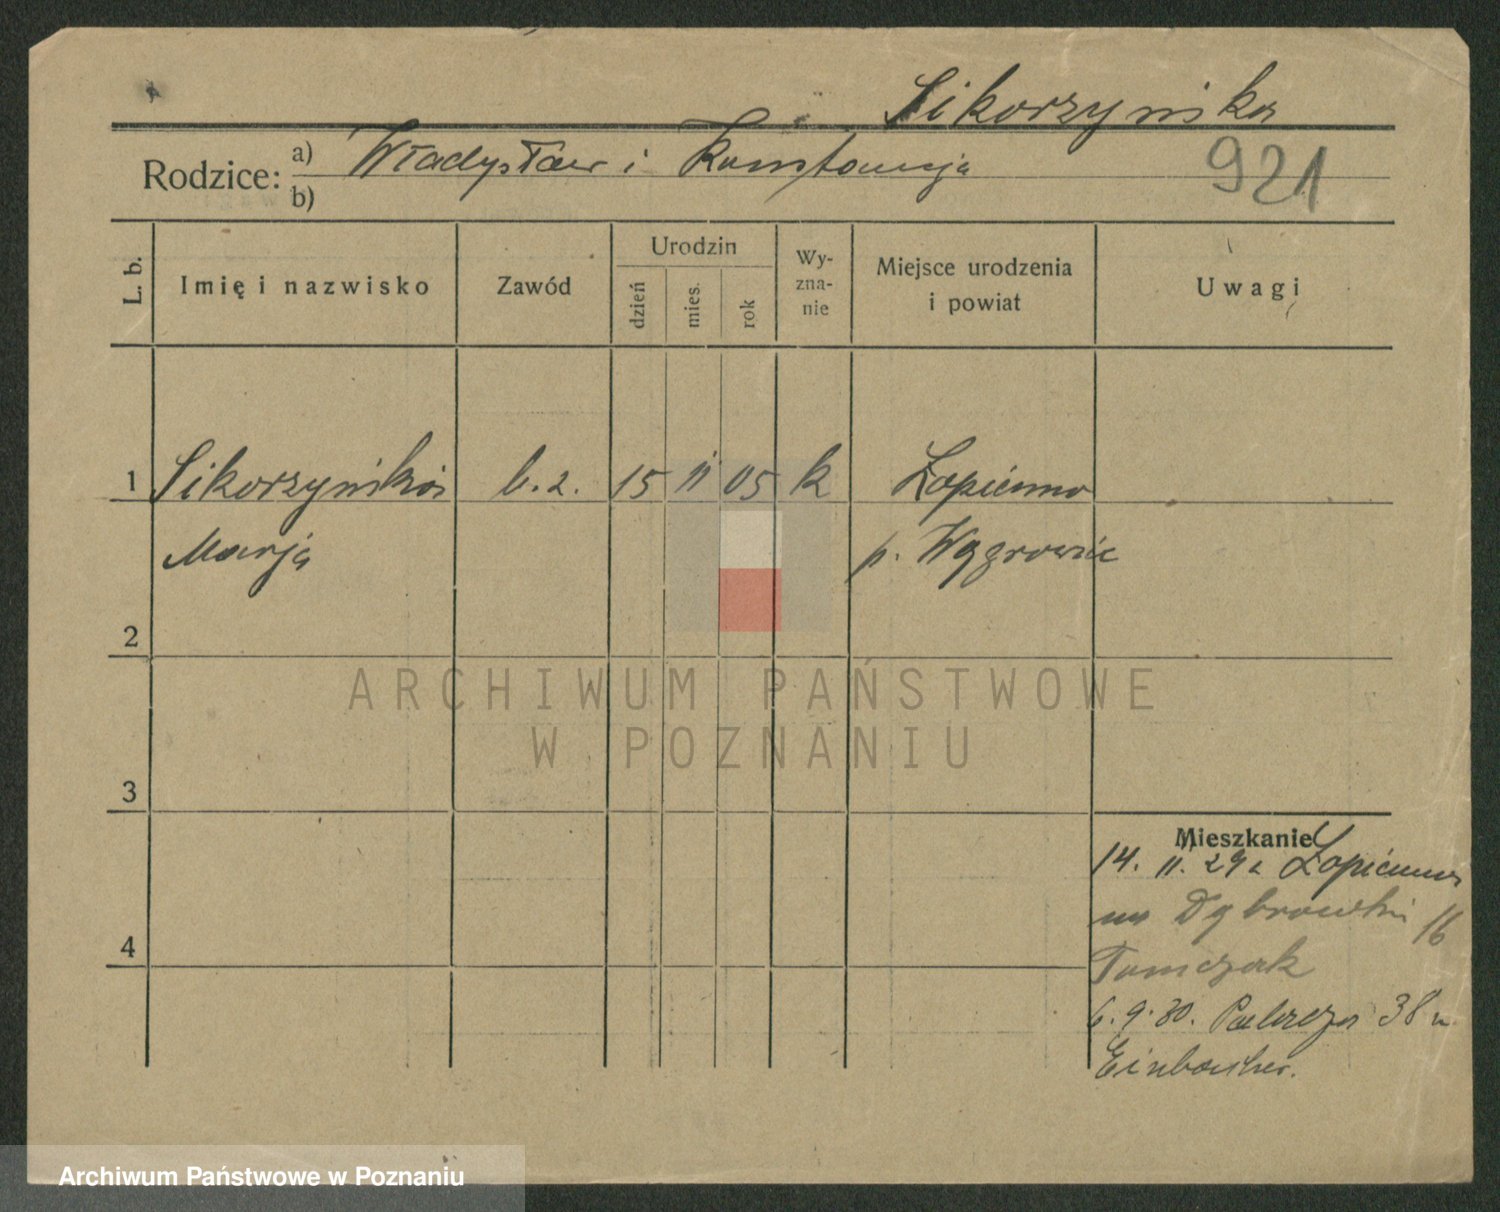 Sikorzyńska
Rodzice: a) Władysław i Konstancja
b)
921
L. b.
Imię i nazwisko
Zawód
Urodzin
dzień
mies.
rok
Wy-
zna-
nie
Miejsce urodzenia
i powiat
Uwagi
1 Sikorzyńska b. z. 15 11 05 k Łopienno
Marja p. Wągrowiec
2
3
4
Mieszkanie
14. 11. 29 z Łopienna
na Dąbrowskiego 16
Tomczak
6. 9. 30. 38
ARCHIWUM PAŃSTWOWE
W POZNANIU
Archiwum Państwowe w Poznaniu